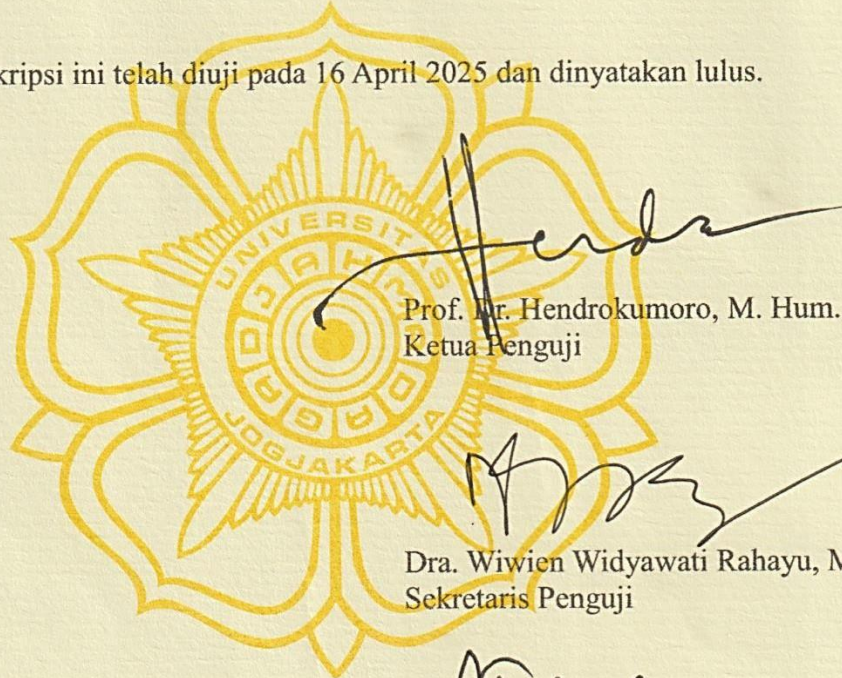 kripsi ini telah diuji pada 16 April 2025 dan dinyatakan lulus.
UNIVERSITAS
GADJAH MADA
JOGJAKARTA
Prof. Dr. Hendrokumoro, M. Hum.
Ketua Penguji
Dra. Wiwien Widyawati Rahayu, M
Sekretaris Penguji